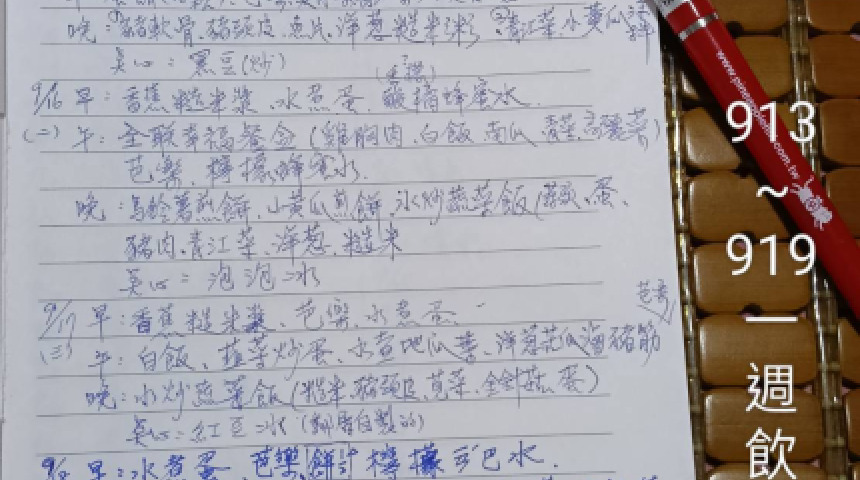 晚：豬軟骨、豬頭皮、魚片、洋蔥糙米粥 青江菜 小黃瓜
點心：黑豆(炒)
9/16 早：香蕉糙米漿、水煮蛋、酸橘蜂蜜水
(二) 午：全聯幸福餐盒(雞胸肉、白飯、南瓜、青菜、高麗菜)
芭樂、檸檬蜂蜜水
晚：馬鈴薯煎餅、小黃瓜煎餅、水炒蔬菜飯(菇、蛋、
豬肉、青江菜、洋蔥、糙米
點心：泡泡冰
9/17 早：香蕉糙米漿、芭樂、水煮蛋
(三) 午：白飯、韭菜炒蛋、水煮地瓜葉、洋蔥 豬筋
晚：水炒蔬菜飯(糙米、豬頭皮、莧菜、金針菇、蛋)
點心：紅豆冰
早：水煮蛋、芭樂 檸檬 可巴水
www.pin .com.tw
913
~
919
一
週
飲